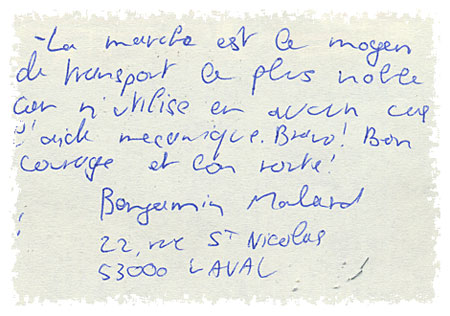 - La marche est le moyen
de transport le plus noble
car n'utilise en aucun cas
l'aide mécanique. Bravo! Bon
courage et bon route!
Benjamin Malard
22, rue St Nicolas
53000 LAVAL